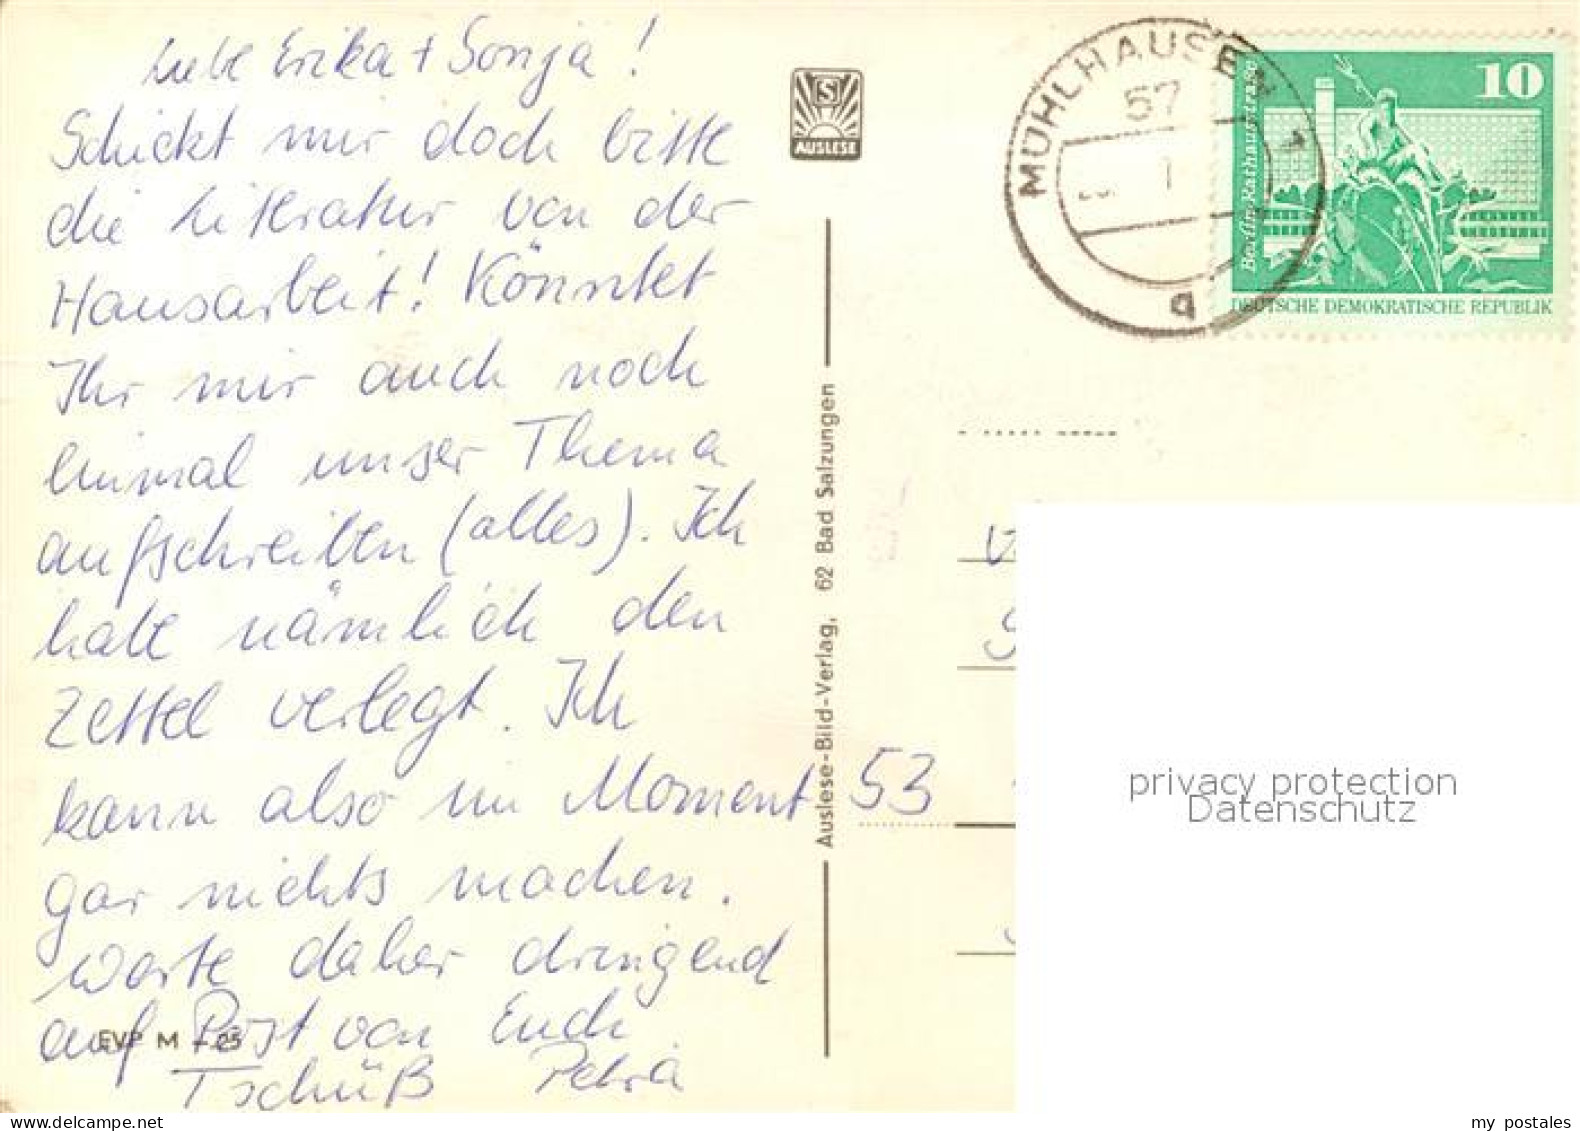 Liebe Erika + Sonja!
Schickt mir doch bitte
die Literatur von der
Hausarbeit! Könntet
Ihr mir auch noch
einmal unser Thema
aufschreiben (alles). Ich
habe nämlich den
Zettel verlegt. Ich
kann also im Moment
gar nichts machen.
Warte daher dringend
auf Post von Euch
Tschüß Petra
EVP M -.25
S
AUSLESE
Auslese-Bild-Verlag, 62 Bad Salzungen
MÜHLHAUSEN 1
57
a
10
Berlin, Rathausstraße
DEUTSCHE DEMOKRATISCHE REPUBLIK
53
privacy protection
Datenschutz
my postales